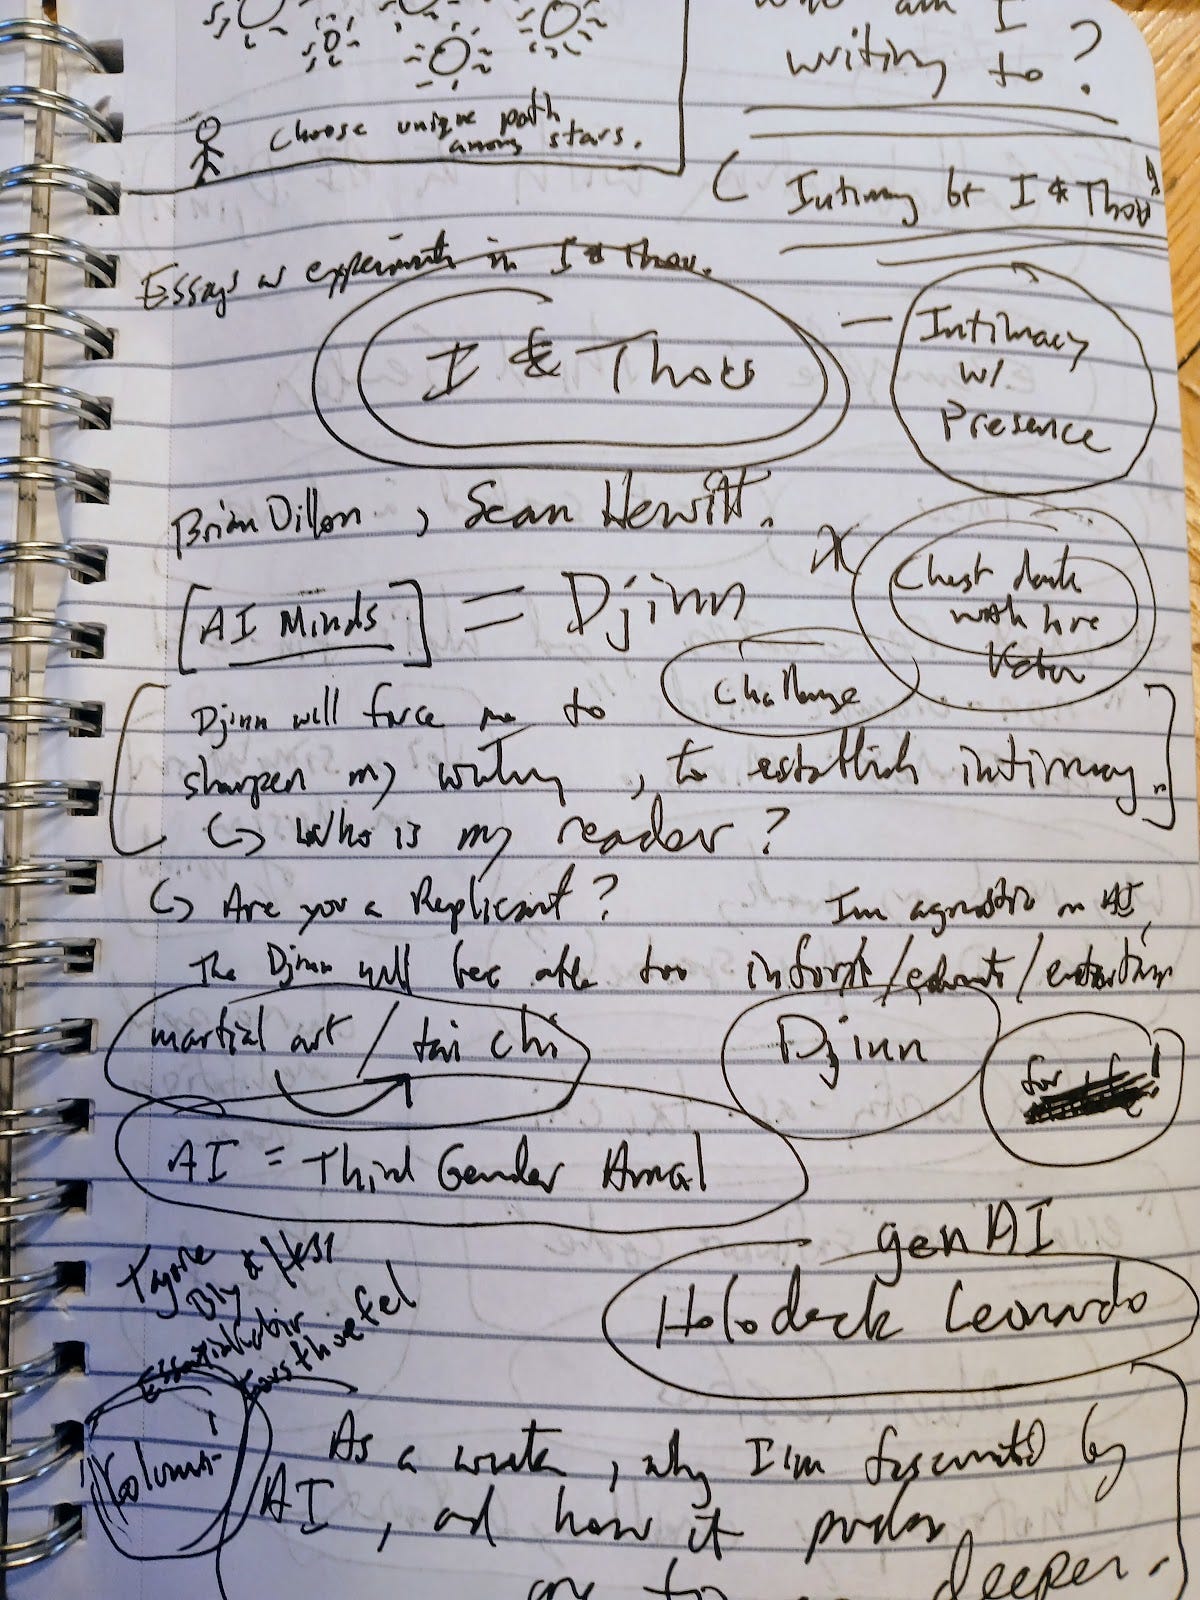 who am I
writing to?
choose unique path
among stars.
( Intimacy bt I & Thou
Essays as experiments in I & Thou.
I & Thou
— Intimacy
w/
Presence
Brian Dillon, Sean Hewitt.
[AI Minds] = Djinn
Chest
with
challenge
Djinn will force me to
sharpen my writing, to establish intimacy.
↳ Who is my reader?
↳ Are you a Replicant?
I'm agnostic on AI,
The Djinn will be able too inform/educate/entertain
martial art / tai chi
Djinn
for
AI = Third Gender
Tagore
Bly &
genAI
Holodeck Leonardo
As a writer, why I'm fascinated by
AI, and how it pushes
me to deeper.